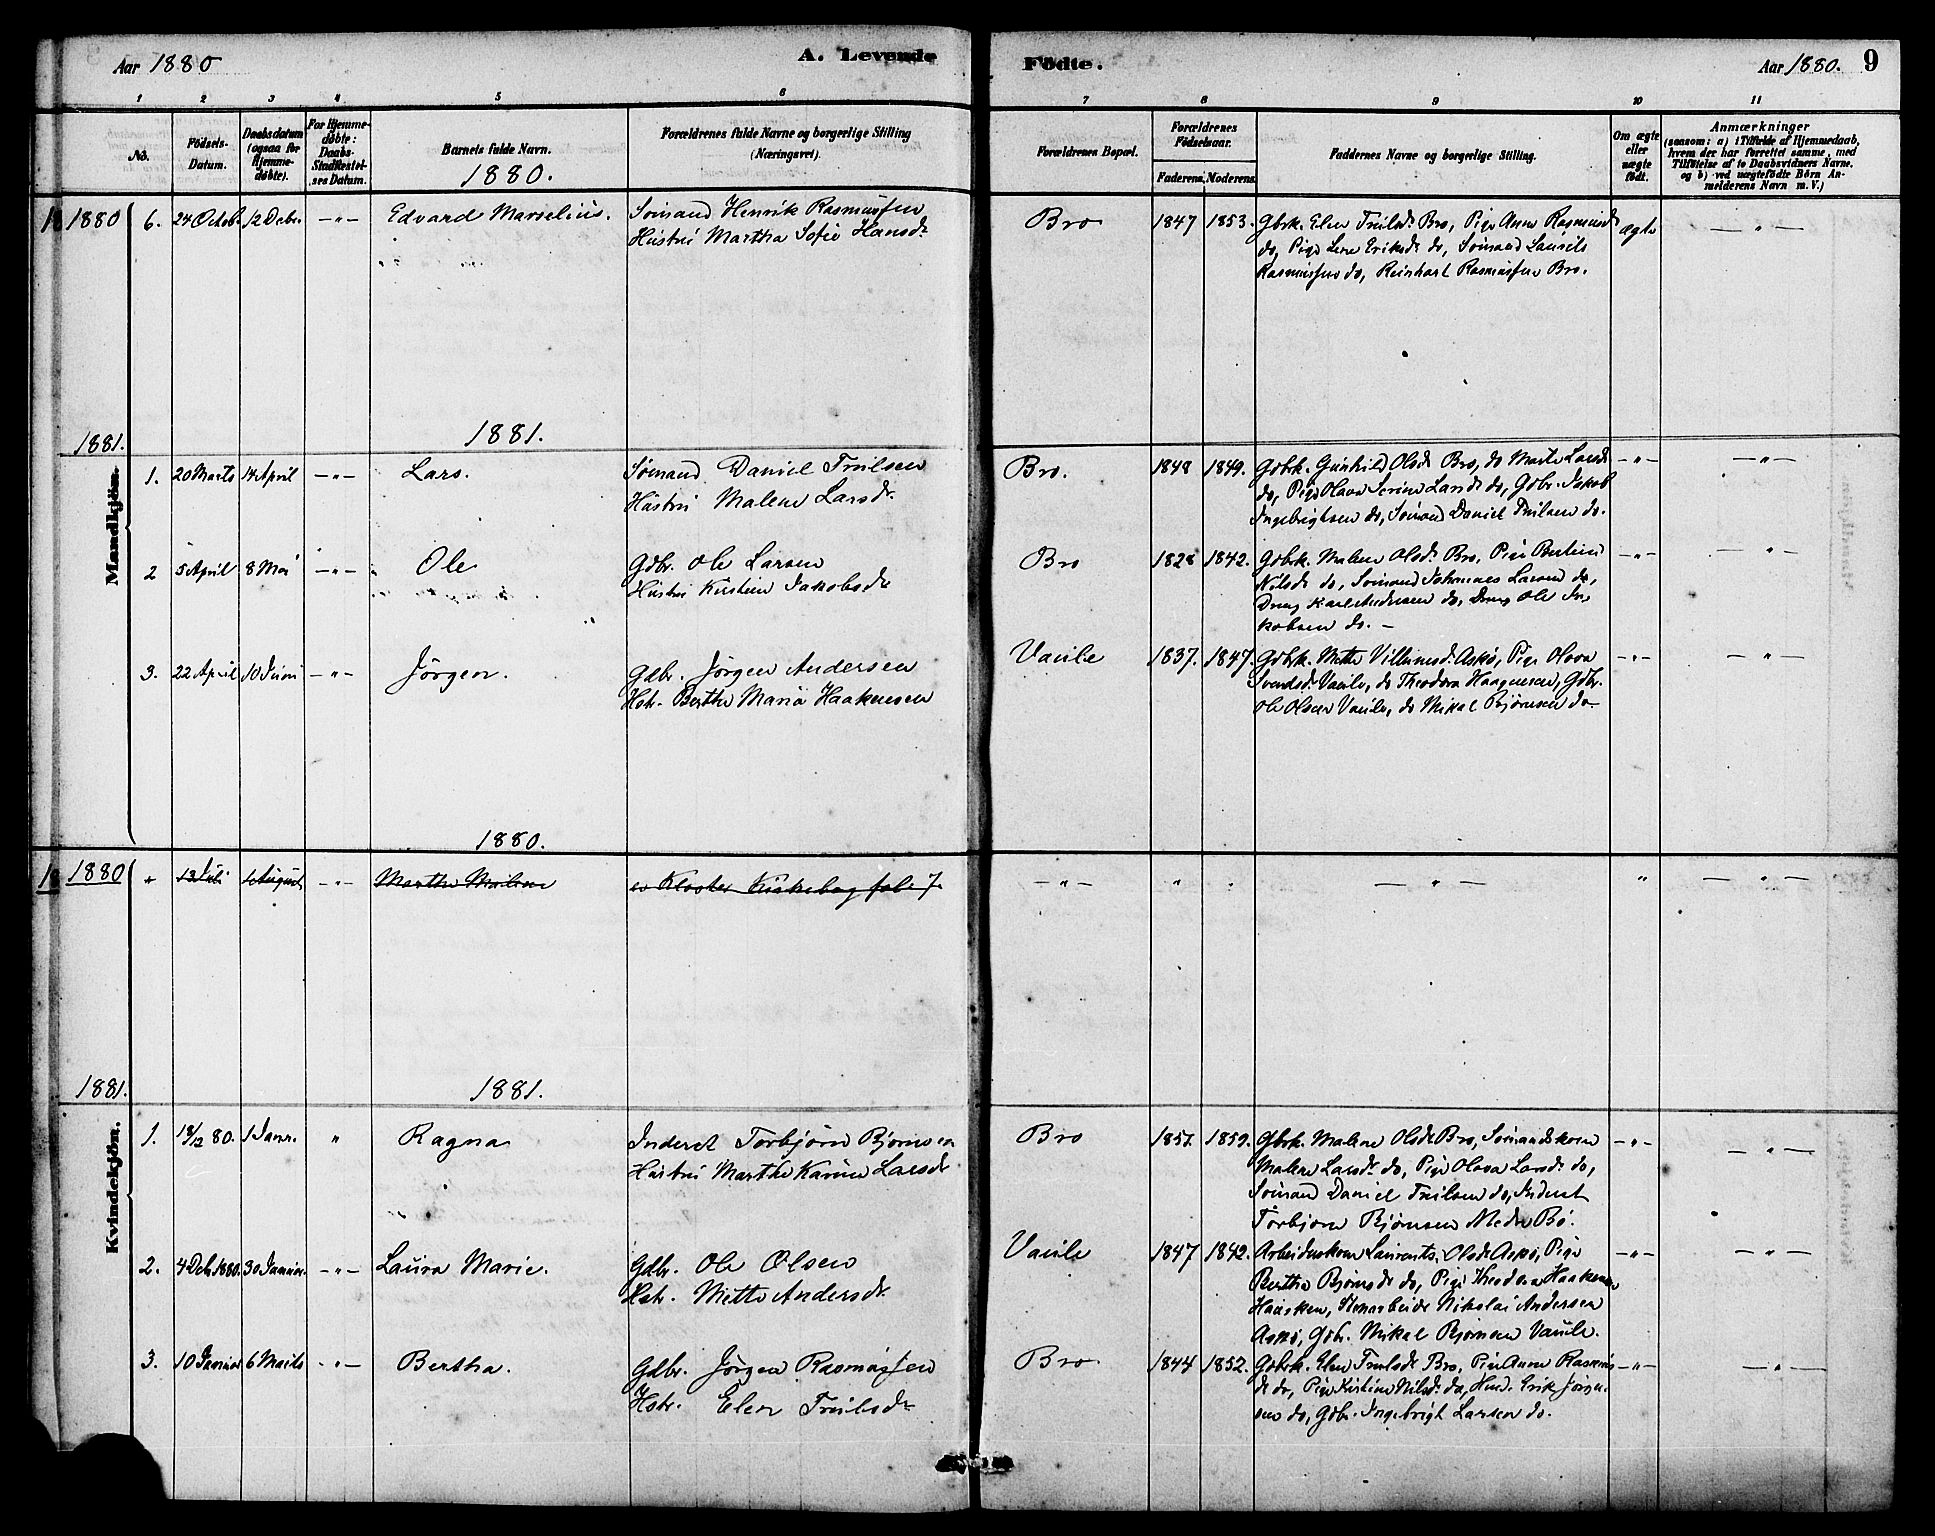 Aar 1880
A. Levende
Födte.
Aar 1880.
9
1 2 3 4 5 6 7 8 9 10 11
No.
Födsels-
Datum.
Daabsdatum
(ogsaa for
Hjemme-
døbte).
For Hjemme-
døbte:
Daabs-
Stadfæstel-
ses Datum.
Barnets fulde Navn.
1880.
Forældrenes fulde Navne og borgerlige Stilling
(Næringsvei).
Forældrenes Bopæl.
Forældrenes
Födselsaar.
Faderens. Moderens.
Faddernes Navne og borgerlige Stilling.
Om ægte
eller
uægte
födt.
Anmærkninger
(saasom: a) i Tilfælde af Hjemmedaab,
hvem der har forrettet samme, med
Tilføielse af to Daabsvidners Navne,
og b) ved uægtefödte Börn An-
melderens Navn m.V.)
18 1880 6. 24 Octob. 12 Decbr. —"— Edvard Marselius.
Sömand Henrik Rasmussen
Hustru Martha Sofie Hansd.
Bro 1847 1853.
Gbrk. Elen Truilsd. Bro, Pige Anne Rasmusd.
do, Pige Lene Eriksd. do, Sömand Laurits
Rasmussen do, Reinhart Rasmussen Bro.
ægte —"—
1881. 1881.
Mandkjön.
1. 20 Marts 14 April —"— Lars.
Sömand Daniel Truilsen
Hustru Malene Larsdr.
Bro. 1848 1849.
Gdbrk. Gunhild Olsd. Bro, do Marte Larsd.
do, Pige Olava Serine Larsd. do, Gdbr. Jakob
Ingebrigtsen do, Sömand Daniel Truilsen do.
—"— —"—
2 5 April 8 Mai —"— Ole
Gdbr. Ole Larsen
Hustru Kirstine Jakobsdr
Bro 1828 1842.
Gdbrk. Malene Olsd. Bro, Pige
Nilsd. do, Sömand Johannes Larsen do,
Dreng Karl Andersen do, Dreng Ole Ja-
kobsen do. —
—"— —"—
3. 22 April 10 Juni —"— Jörgen.
Gdbr. Jörgen Andersen
Hstr. Berthe Maria Haakensen
Vaule 1837. 1847
Gdbrk. Mette Villumsd. Askø, Pige Olava
Svendsd. Vaule, do Theodora Haagensen, Gdbr.
Ole Olsen Vaule, do Mikal Bjørnsen do
—"— —"—
1880.
18 1880 " 13 Juli 1 August —"— Marthe Malene
cs Kloster Kirkebog fol. 7.
—"— " " —"— " —"—
1881. 1881.
Kvindekjön.
1. 18/12 80. 1 Janr. " Ragna
Inderst Torbjörn Bjørnsen
Hustru Marthe Karine Larsdr
Bro 1857. 1859.
Gbrk. Malene Olsd. Bro, Sömandskone
Malene Larsdr do, Pige Olava Larsd. do,
Sömand Daniel Truilsen do, Inderst
Torbjørn Bjørnsen Nedre Bö.
—"— —"—
2. 4 Decb. 1880. 30 Januar. —"— Laura Marie.
Gdbr. Ole Olsen
Hstr. Mette Andersdr.
Vaule 1847 1842.
Arbeiderskone Laurents. Olsd. Askø, Pige
Bertha Bjørnsd. do, Pige Theodora Haakensen
Hausken, Stenarbeider Nikolai Andersen
Askø, Gdbr. Mikal Bjørnsen Vaule.
—"— —"—
3. 10 Januar 6 Marts —"— Bertha.
Gdbr. Jörgen Rasmussen
Hstr. Elen Truilsdr
Bro 1844 1852.
Gdbrk. Elen Truilsd. Bro, Pige Anne Rasmus-
d. do, Pige Kirstine Nilsd. do, Erik Jörgen-
sen do, Gdbr. Ingebrigt Larsen do.
—"— —"—